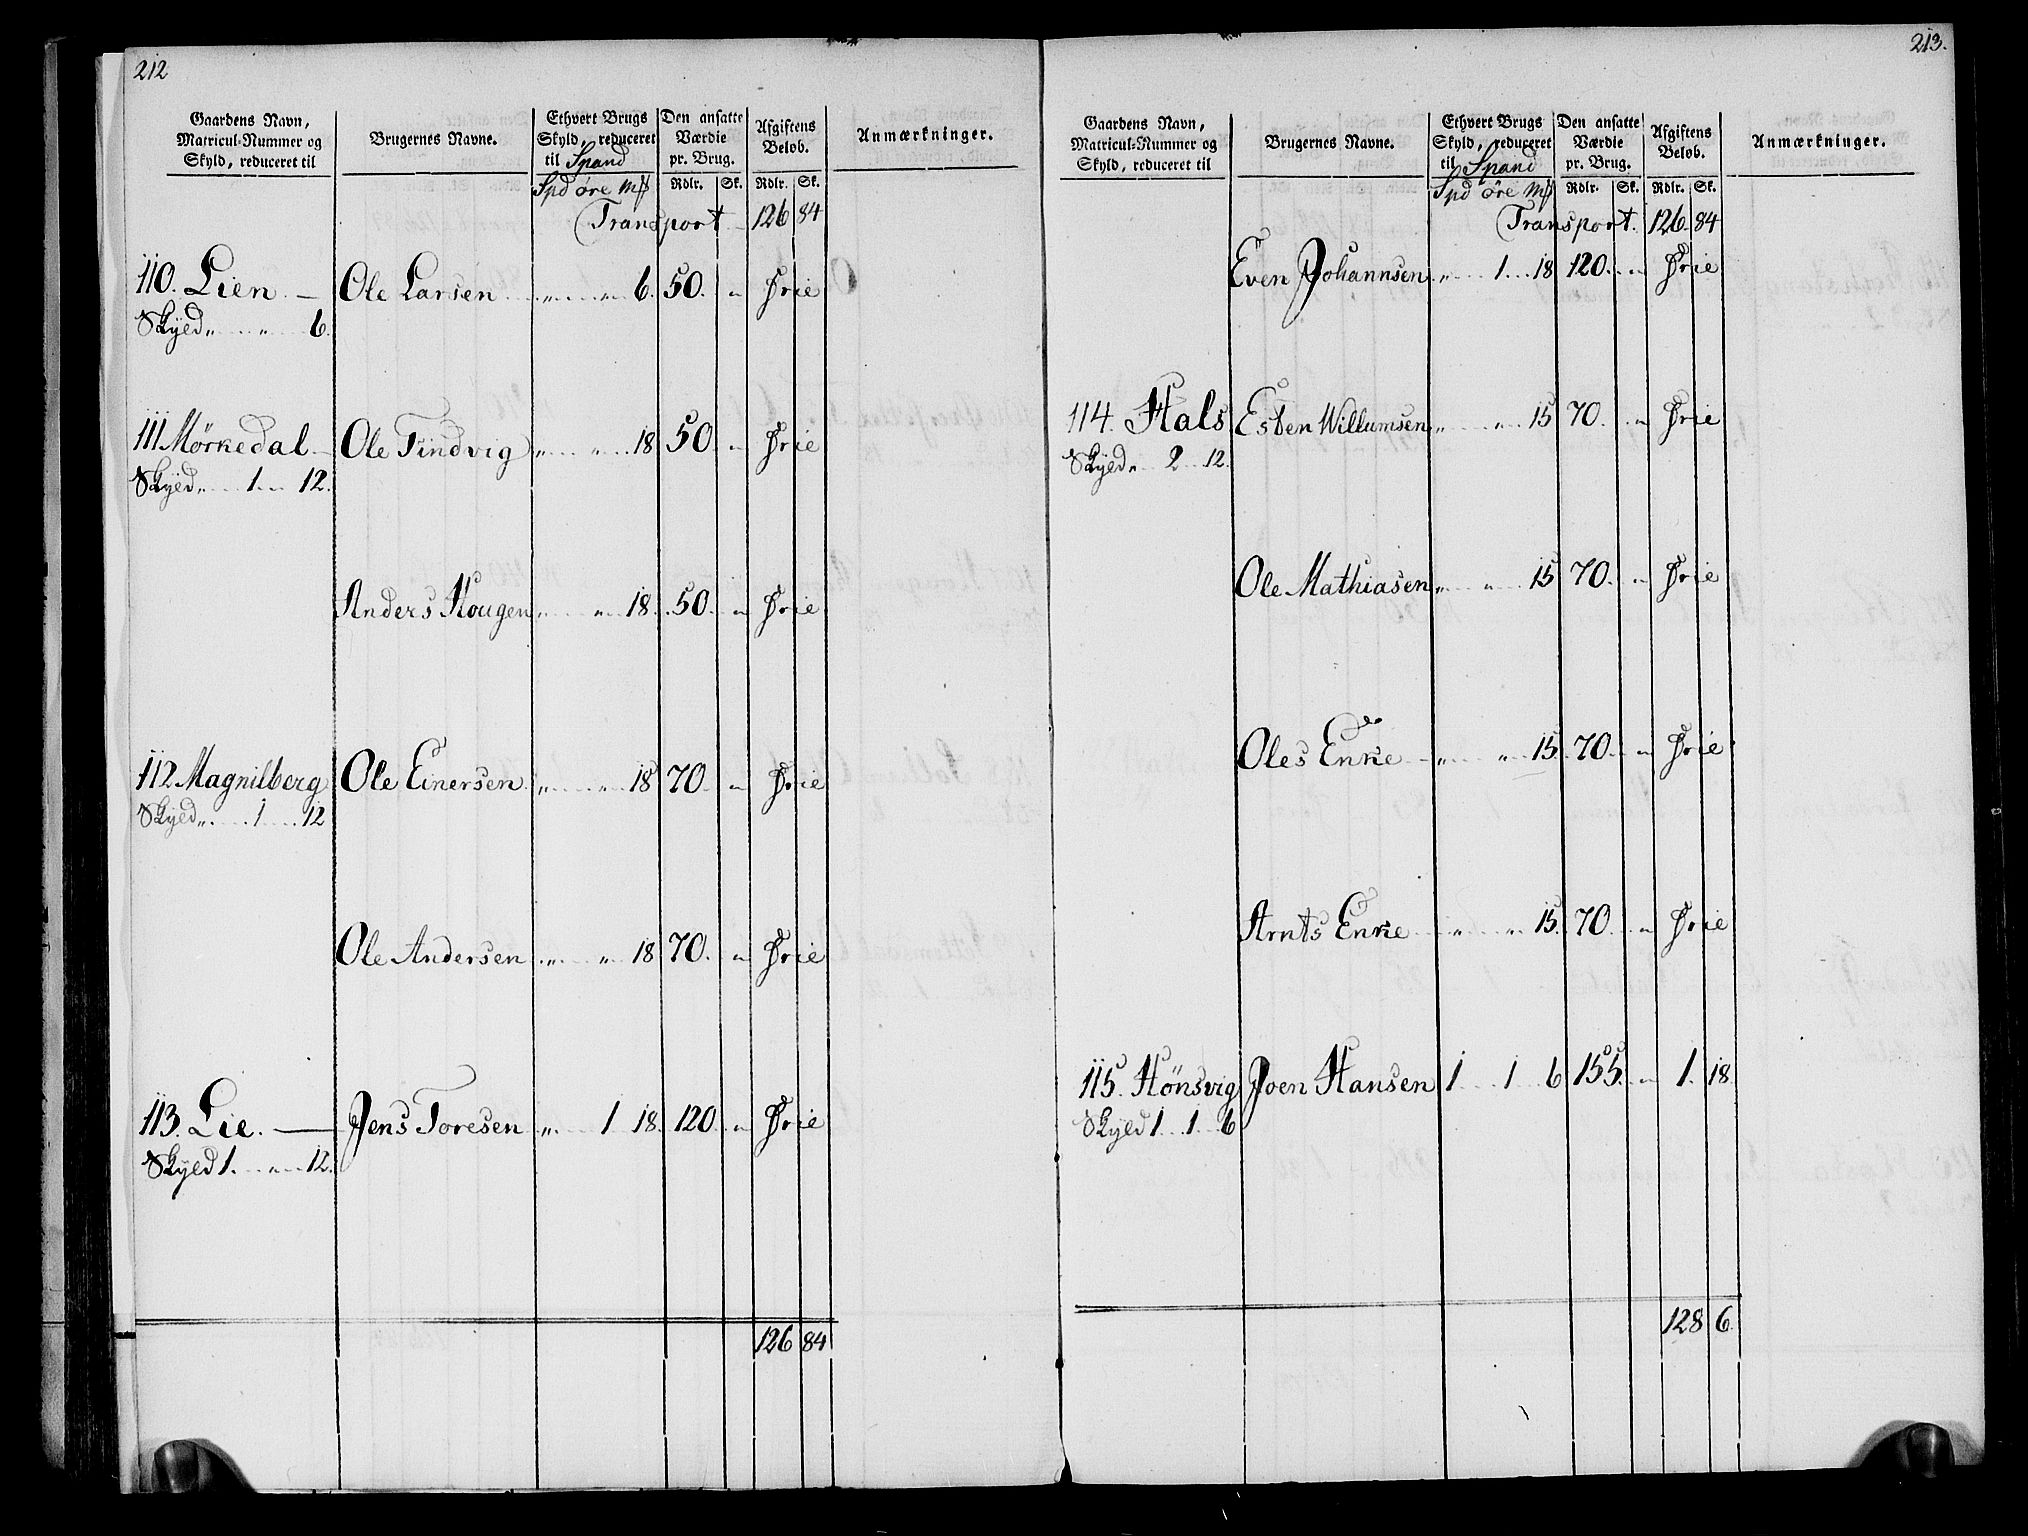 212
Gaardens Navn, Matricul-Nummer og Skyld, reduceret til | Brugernes Navne. | Ethvert Brugs Skyld, reduceret til Spand | Den ansatte Værdie pr. Brug. | Afgiftens Beløb. | Anmærkninger.
Spd øre Mk | Rdlr. | Sk. | Rdlr. | Sk.
Transport 126 84
110. Lien — Ole Larsen „ „ 6. 50. „ Frie
Skyld „ „ 6.
111 Mørkedal Ole Tindvig „ „ 18 50 „ Frie
Skyld „ 1 12.
Anders Hougen „ „ 18. 50. „ Frie
112. Magnilberg Ole Einersen „ „ 18 70 „ Frie
Skyld „ 1 12
Ole Andersen „ „ 18 70. „ Frie
113. Lie. — Jens Toresen „ 1 18. 120. „ Frie
Skyld 1. „ 12.
126 84
213.
Gaardens Navn, Matricul-Nummer og Skyld, reduceret til | Brugernes Navne. | Ethvert Brugs Skyld, reduceret til Spand | Den ansatte Værdie pr. Brug. | Afgiftens Beløb. | Anmærkninger.
Spd øre Mk | Rdlr. | Sk. | Rdlr. | Sk.
Transport. 126. 84
Even Johannsen „ 1 18 120. „ Frie
114. Hals Esten Willumsen „ „ 15 70. „ Frie
Skyld „ 2 12.
Ole Mathiasen „ „ 15 70. „ Frie
Oles Enke „ „ 15. 70. „ Frie
Arnts Enke „ „ 15. 70. „ Frie
115. Hønsvig Joen Hansen 1 1 6 155. „ 1. 18.
Skyld 1 1 6
128 6.